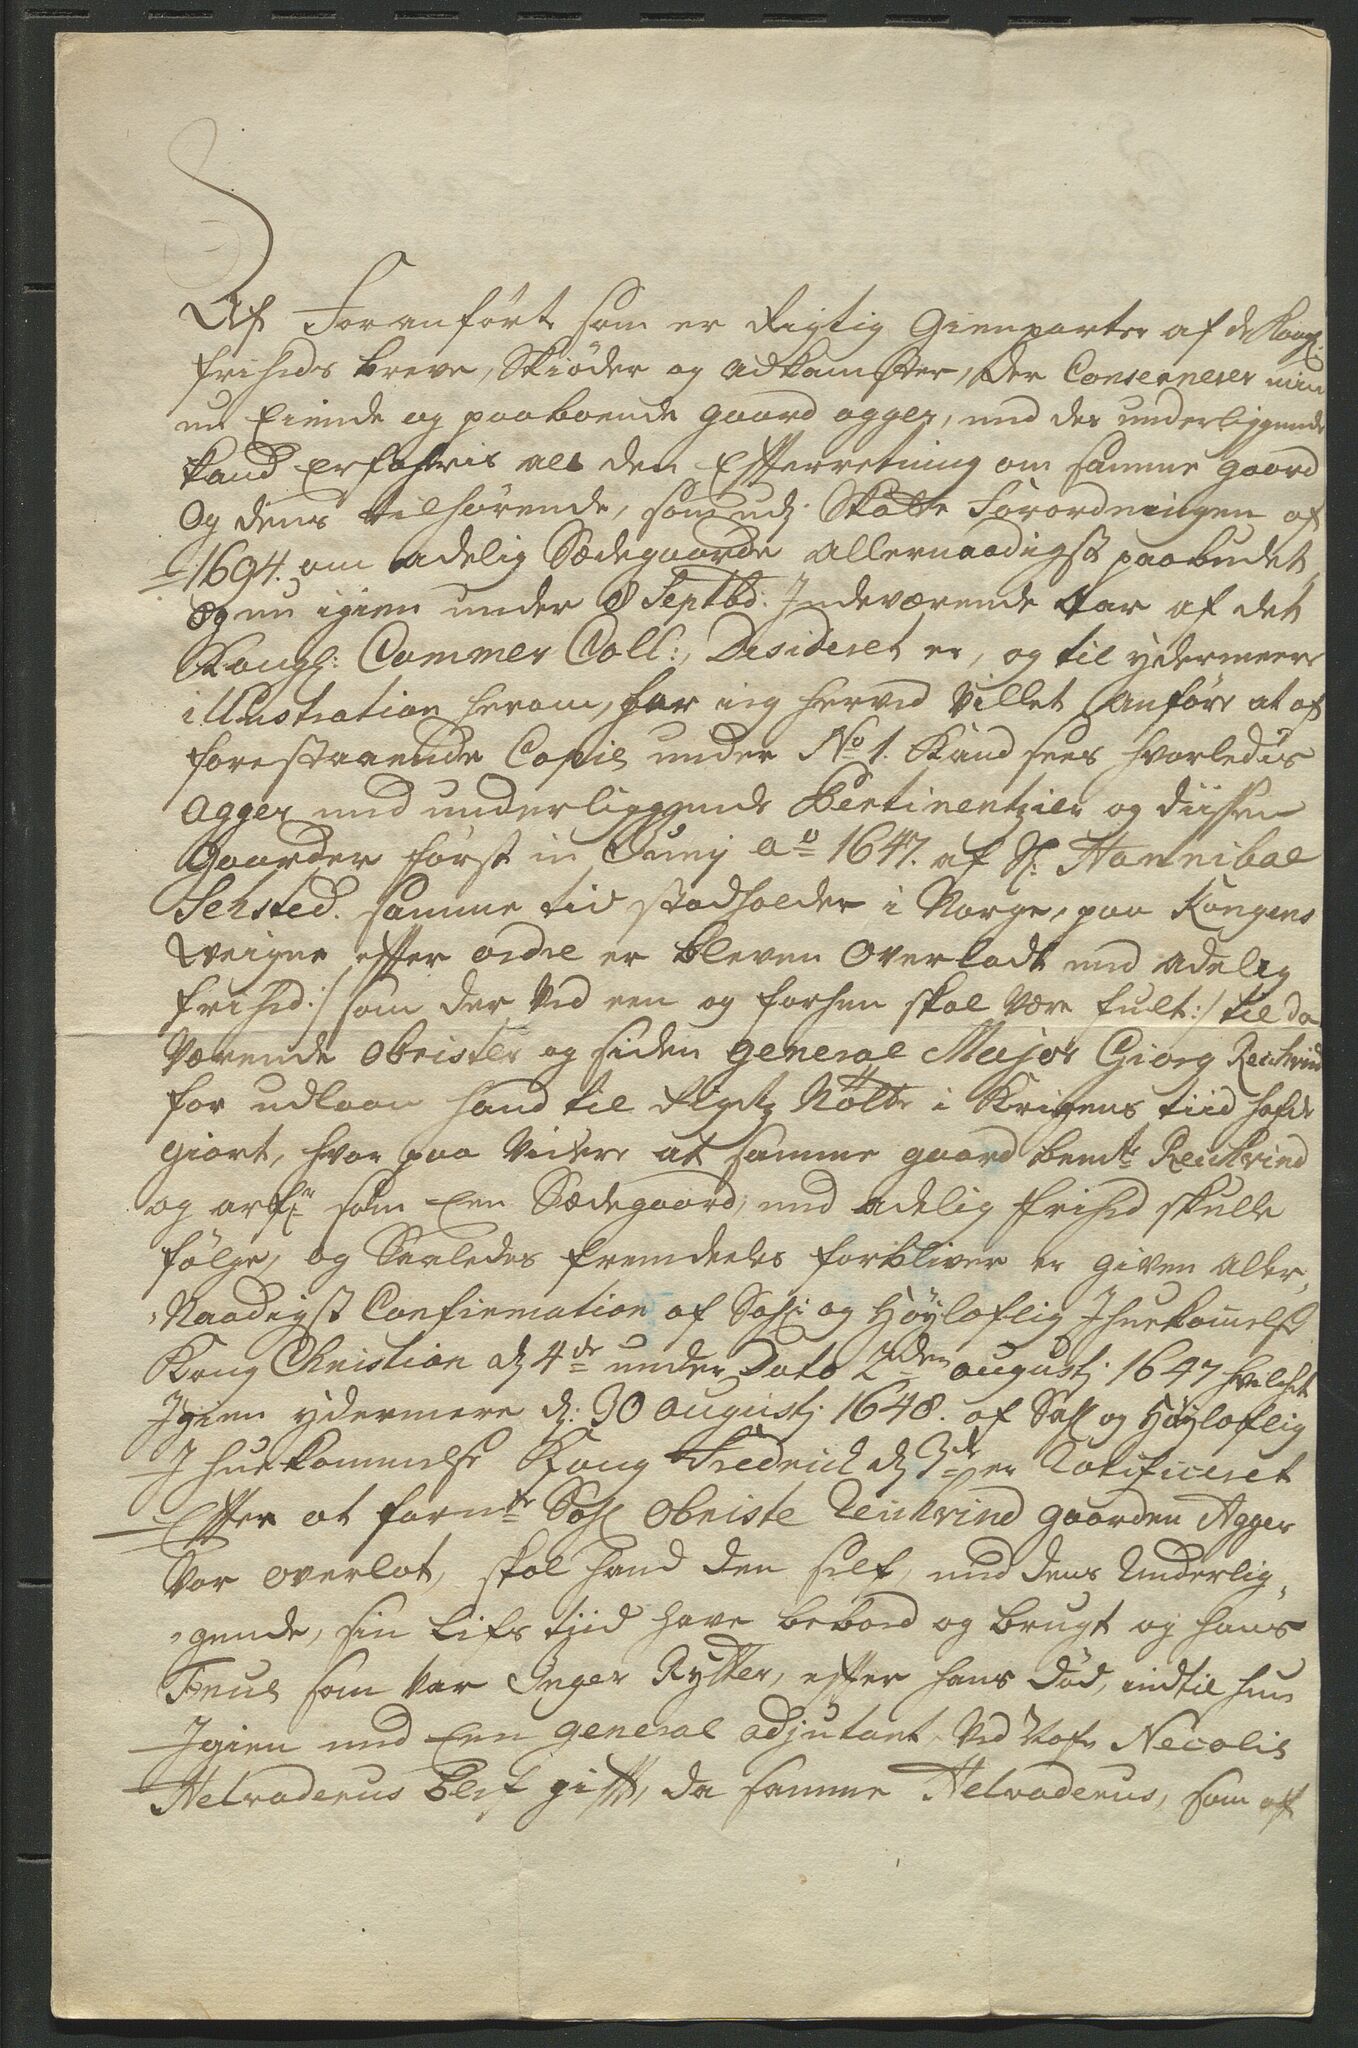 Af Foranförte som er Rigtig Gienparter af de Kongl:
friheds breve, Skiöder og adkomster, der Concernerer min
nu Eiende og paaboende gaard agger, med des underliggende
kand erfahris all den Efterretning om samme gaard
Og dens tilhörende, som udj Skatte Forordningen af
1694. om adelig Sædegaarde allernaadigst paabudet,
og nu igien under 8 Septbr. Indeværende Aar af det
Kongl: Cammer Coll:, Desideret er, og til ydermeere
illustration herom, har ieg herved Villet anföre at af
forestaaende Copie under No 1. Kand sees hvorledis
Agger med underliggende Pertinentzier og diissen
Gaarder först in Junij ao 1647. af Hr: Hannibal
Sehsted. samme tid stadholder i Norge, paa Kongens
Veigne efter ordre er bleven Overladt med adelig
frihed :/ som der ved een og forhen skal være fult :/ til da
Værende Obrister og siden general Major Giorg Reichvin
for udlaan hand til Rigetz Nötte i Krigens tiid hafde
giort, hvor paa Videre at samme gaard bemte Reichvind
og arf: som Een Sædegaard, med adelig frihed skulle
fölge, og Saaledes fremdeeles forbliver er given aller,
Naadigst Confirmation af Sahl: og Höyloflig Ihuekommelse
Kong Christian d 4de under Dato 2den augustj 1647 hvilchet
Igien ydermere d: 30 augustj. 1648. af Sahl og Höyloflig
Ihuekommelse Kong Fredrich d 3de er Ratificeret
Efter at formte Sahl Obriste Reichvind gaarden Agger
Var overlat, skal hand den self, med dens Underlig,
gende, sin Lifs tjid have beboed og brugt og hans
Frue som var Inger Rytter, efter hans död, indtil hun
Igien med Een general adjutant ved Nafn Necolis
Helvaderus blef gift, da samme Helvaderus, som af